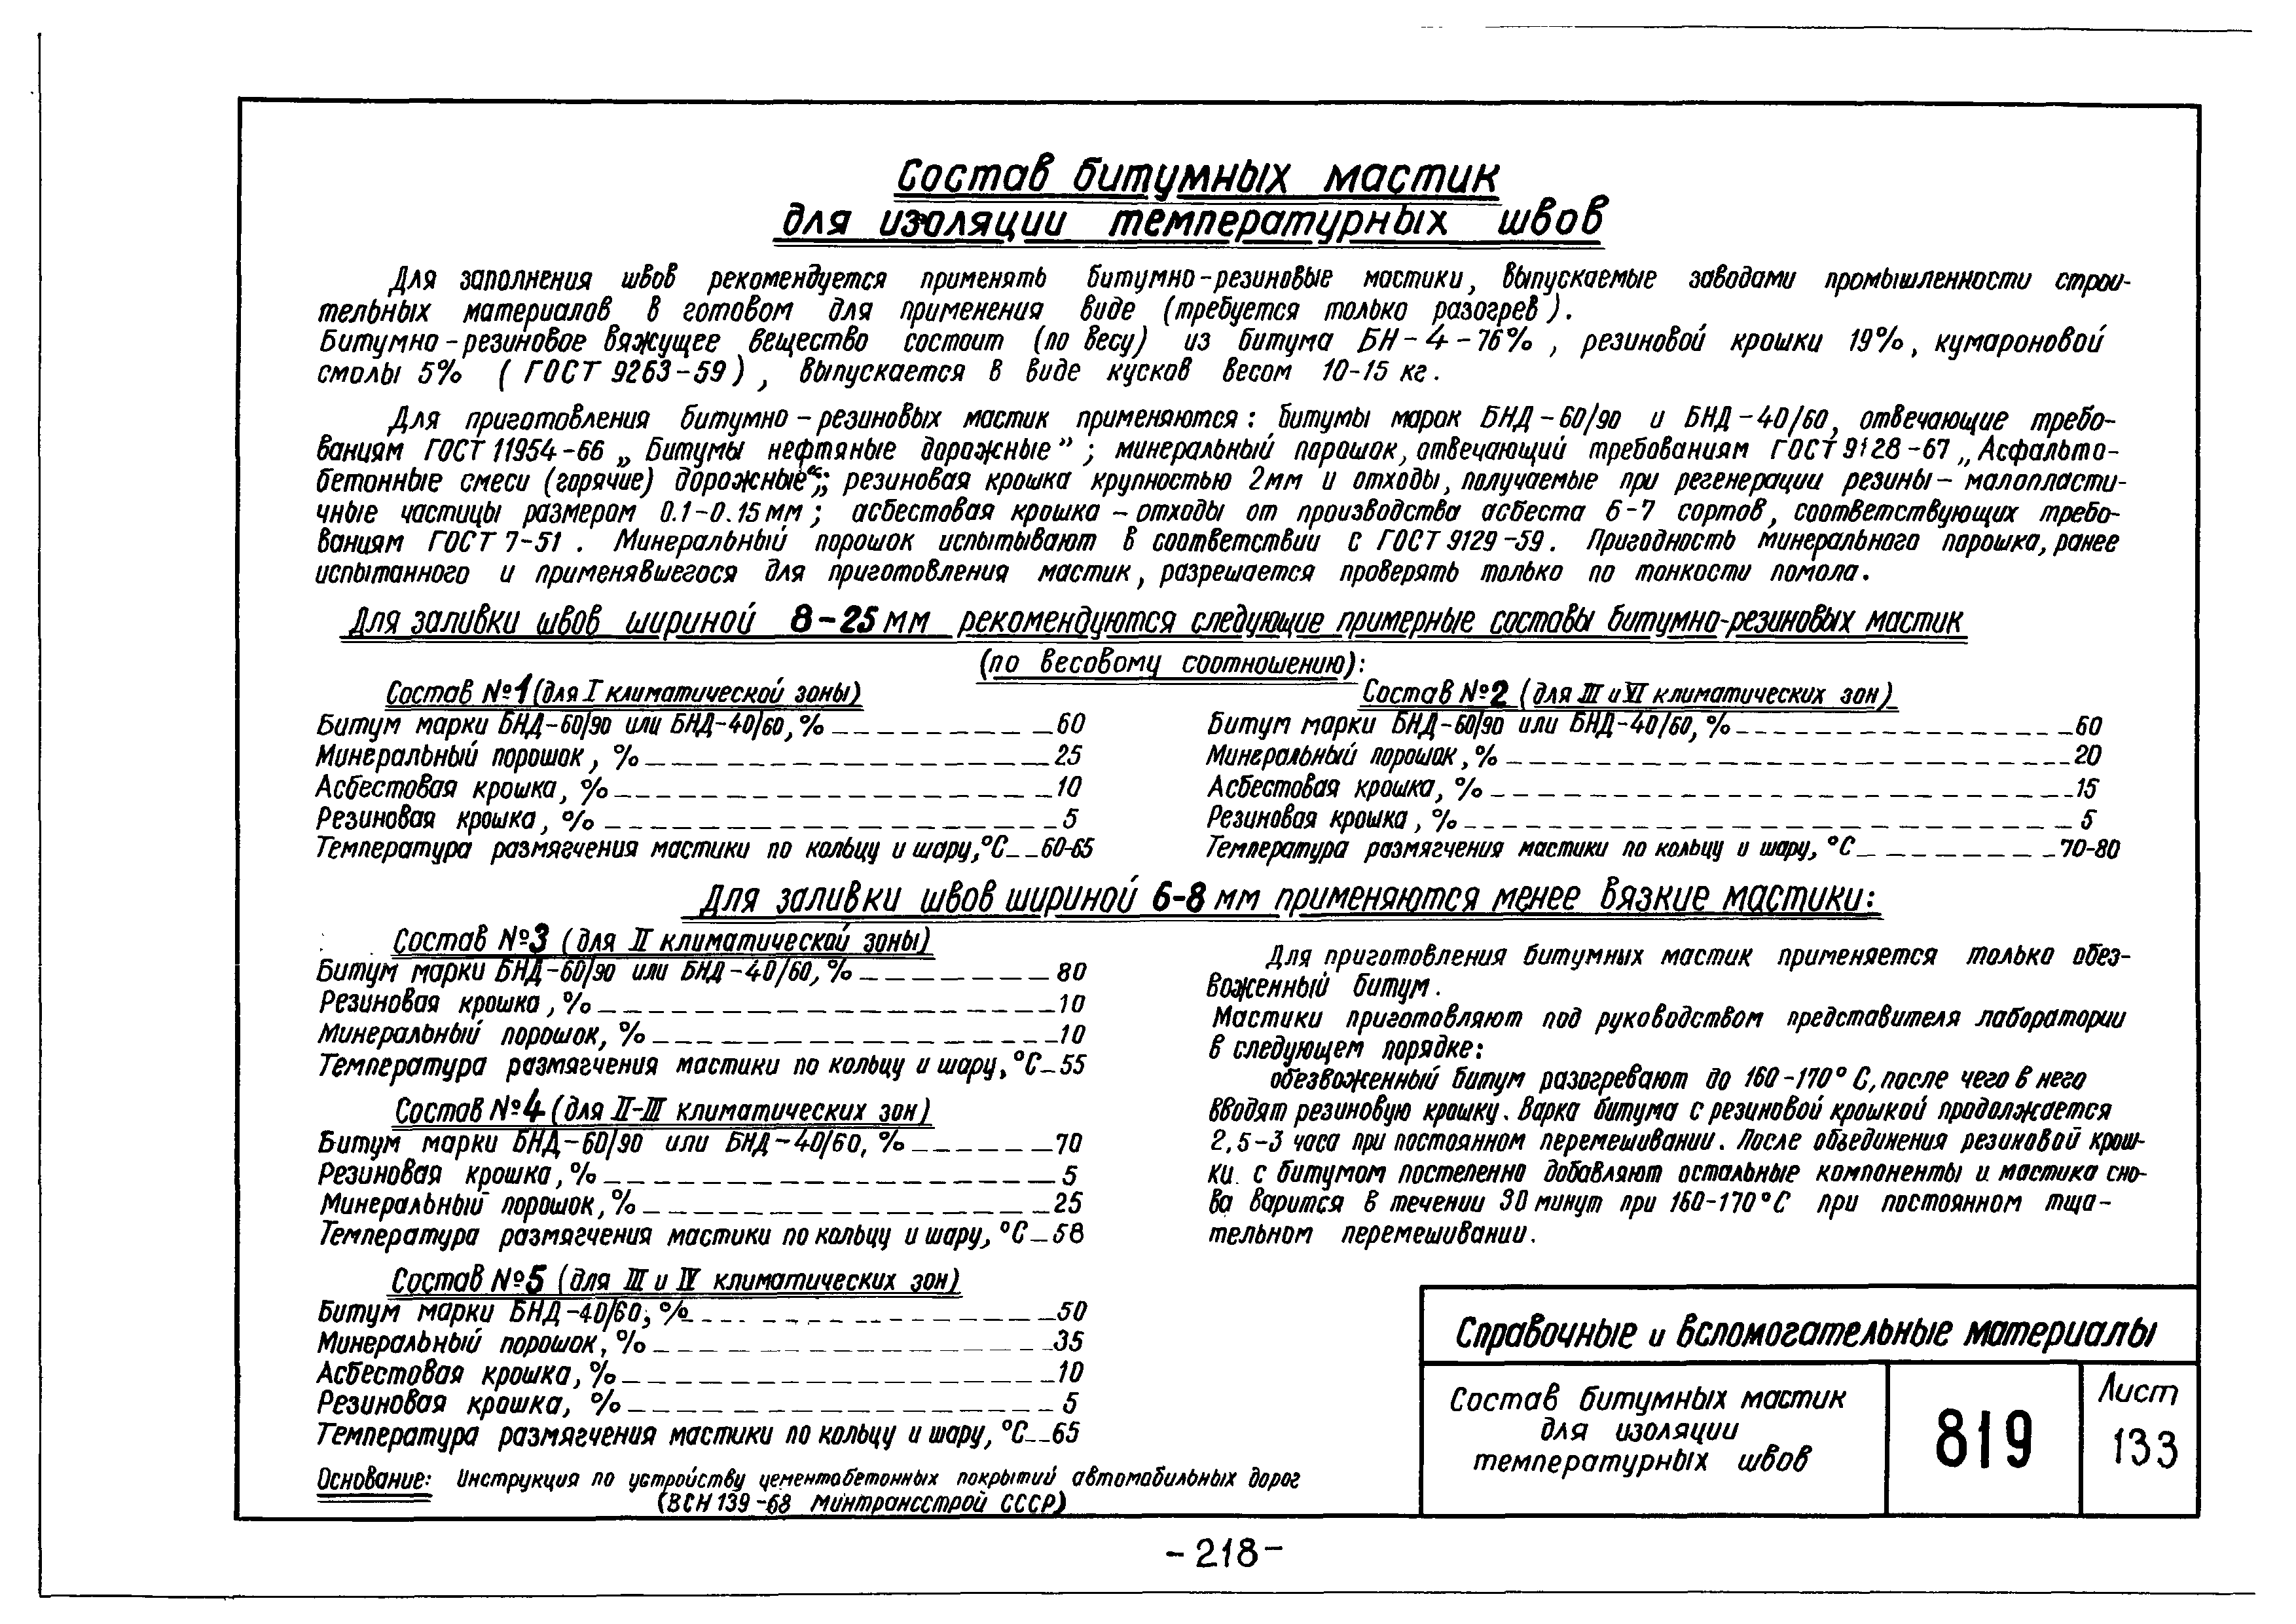 Состав битумных мастик
для изоляции температурных швов
Для заполнения швов рекомендуется применять битумно-резиновые мастики, выпускаемые заводами промышленности строи-
тельных материалов в готовом для применения виде (требуется только разогрев).
Битумно-резиновое вяжущее вещество состоит (по весу) из битума БН-4-76%, резиновой крошки 19%, кумароновой
смолы 5% (ГОСТ 9263-59), выпускается в виде кусков весом 10-15 кг.
Для приготовления битумно-резиновых мастик применяются: битумы марок БНД-60/90 и БНД-40/60, отвечающие требо-
ваниям ГОСТ 11954-66 „Битумы нефтяные дорожные"; минеральный порошок, отвечающий требованиям ГОСТ 9128-67 „Асфальто-
бетонные смеси (горячие) дорожные“; резиновая крошка крупностью 2мм и отходы, получаемые при регенерации резины- малопласти-
чные частицы размером 0.1-0.15 мм; асбестовая крошка - отходы от производства асбеста 6-7 сортов, соответствующих требо-
ваниям ГОСТ 7-51. Минеральный порошок испытывают в соответствии с ГОСТ 9129-59. Пригодность минерального порошка, ранее
испытанного и применявшегося для приготовления мастик, разрешается проверять только по тонкости помола.
Для заливки швов шириной 8-25 мм рекомендуются следующие примерные составы битумно-резиновых мастик
(по весовому соотношению):
Состав №1 (для I климатической зоны)
Битум марки БНД-60/90 или БНД-40/60, % 60
Минеральный порошок, % 25
Асбестовая крошка, % 10
Резиновая крошка, % 5
Температура размягчения мастики по кольцу и шару, °С 60-65
Состав №2 (для III и VI климатических зон)
Битум марки БНД-60/90 или БНД-40/60, % 60
Минеральный порошок, % 20
Асбестовая крошка, % 15
Резиновая крошка, % 5
Температура размягчения мастики по кольцу и шару, °С 70-80
Для заливки швов шириной 6-8 мм применяются менее вязкие мастики:
Состав №3 (для II климатической зоны)
Битум марки БНД-60/90 или БНД-40/60, % 80
Резиновая крошка, % 10
Минеральный порошок, % 10
Температура размягчения мастики по кольцу и шару, °С 55
Состав №4 (для II-III климатических зон)
Битум марки БНД-60/90 или БНД-40/60, % 70
Резиновая крошка, % 5
Минеральный порошок, % 25
Температура размягчения мастики по кольцу и шару, °С 58
Состав №5 (для III и IV климатических зон)
Битум марки БНД-40/60, % 50
Минеральный порошок, % 35
Асбестовая крошка, % 10
Резиновая крошка, % 5
Температура размягчения мастики по кольцу и шару, °С 65
Основание: Инструкция по устройству цементобетонных покрытий автомобильных дорог
(ВСН 139-68 Минтрансстрой СССР)
Для приготовления битумных мастик применяется только обез-
воженный битум.
Мастики приготовляют под руководством представителя лаборатории
в следующем порядке:
обезвоженный битум разогревают до 160-170°С, после чего в него
вводят резиновую крошку. Варка битума с резиновой крошкой продолжается
2,5-3 часа при постоянном перемешивании. После объединения резиковой крош-
ки с битумом постепенно добавляют остальные компоненты и мастика сно-
ва варится в течении 30 минут при 160-170°С при постоянном тща-
тельном перемешивании.
Справочные и вспомогательные материалы
Состав битумных мастик
для изоляции
температурных швов
819
Лист
133
-218-